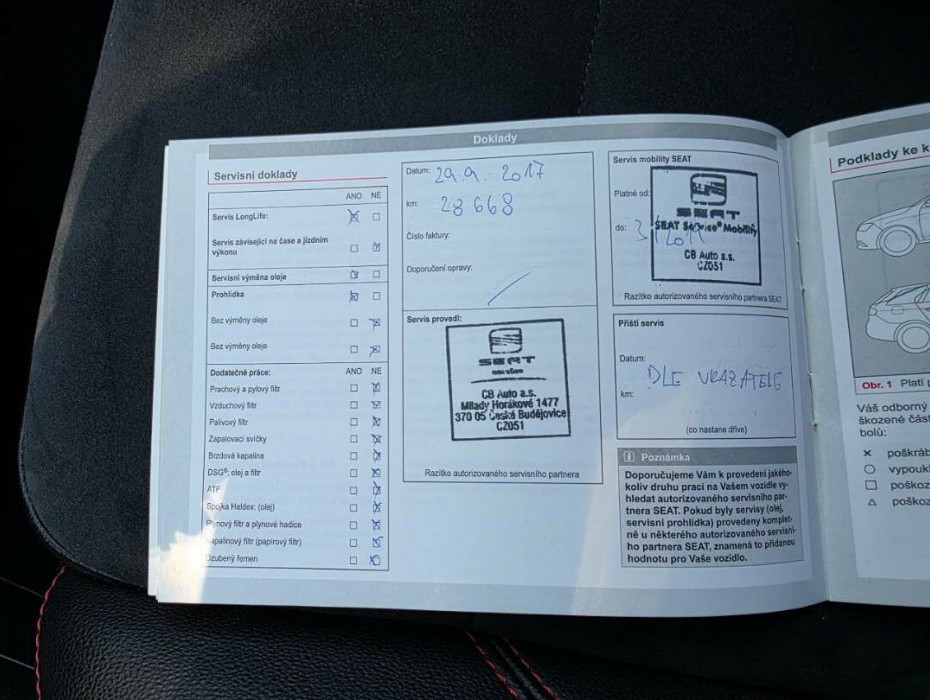 Doklady
Servisní doklady
ANO NE
Servis LongLife:
Servis závisející na čase a jízdním
výkonu
Servisní výměna oleje
Prohlídka
Bez výměny oleje
Bez výměny oleje
Dodatečné práce: ANO NE
Prachový a pylový filtr
Vzduchový filtr
Palivový filtr
Zapalovací svíčky
Brzdová kapalina
DSG®: olej a filtr
ATF
Spojka Haldex: (olej)
Plynový filtr a plynové hadice
Kapalinový filtr (papírový filtr)
Ozubený řemen
Datum: 29.9. 2017
km: 28 668
Číslo faktury:
Doporučení opravy:
Servis provedl:
SEAT
service
CB Auto a.s.
Milady Horákové 1477
370 05 České Budějovice
CZ051
Razítko autorizovaného servisního partnera
Servis mobility SEAT
Platné od:
do:
SEAT
SEAT Service® Mobility
CB Auto a.s.
CZ051
Razítko autorizovaného servisního partnera SEAT
Příští servis
Datum:
DLE UKAZATELE
km:
(co nastane dříve)
i Poznámka
Doporučujeme Vám k provedení jakého-
koliv druhu prací na Vašem vozidle vy-
hledat autorizovaného servisního par-
tnera SEAT. Pokud byly servisy (olej,
servisní prohlídka) provedeny komplet-
ně u některého autorizovaného servisní-
ho partnera SEAT, znamená to přidanou
hodnotu pro Vaše vozidlo.
Podklady ke k
Obr. 1 Platí p
Váš odborný
škozené část
bolů:
× poškráb
○ vypoukl
□ poškoz
△ poškoz